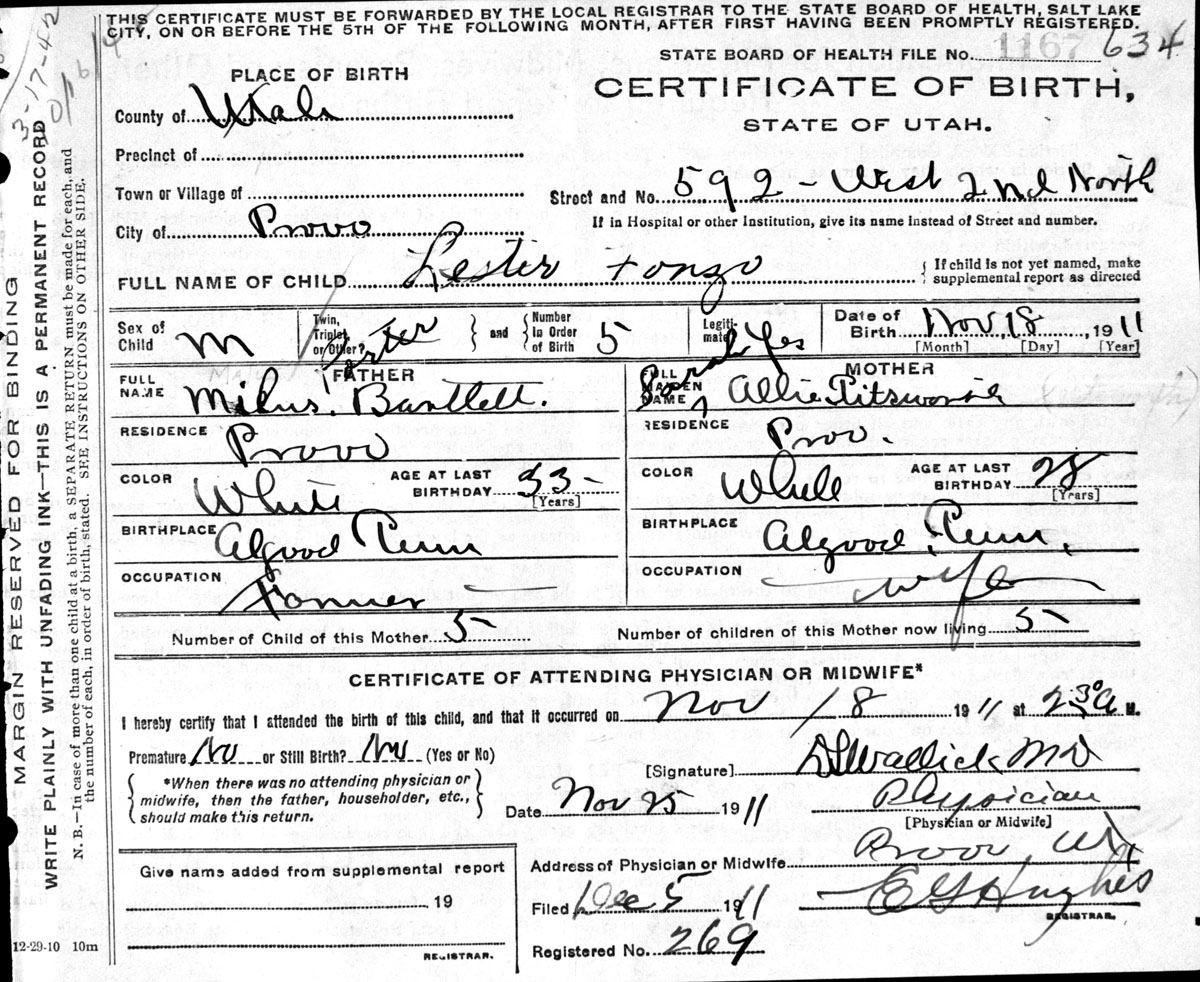 THIS CERTIFICATE MUST BE FORWARDED BY THE LOCAL REGISTRAR TO THE STATE BOARD OF HEALTH, SALT LAKE
CITY, ON OR BEFORE THE 5TH OF THE FOLLOWING MONTH, AFTER FIRST HAVING BEEN PROMPTLY REGISTERED.
STATE BOARD OF HEALTH FILE No. 1167 634
PLACE OF BIRTH
CERTIFICATE OF BIRTH,
STATE OF UTAH.
County of Utah
Precinct of
Town or Village of
Street and No. 592 - West 2nd North
City of Provo
If in Hospital or other Institution, give its name instead of Street and number.
FULL NAME OF CHILD Lester Fonzo
{ If child is not yet named, make supplemental report as directed
Sex of Child M
Twin, Triplet, or Other?
and
Number in Order of Birth 5
Legitimate Yes
Date of Birth Nov 18, 1911
[Month] [Day] [Year]
FATHER
MOTHER
FULL NAME Milus Lester Bartlett.
FULL MAIDEN NAME Sarah Allie
RESIDENCE Provo
RESIDENCE Prov.
COLOR White
AGE AT LAST BIRTHDAY 33 - [Years]
COLOR White
AGE AT LAST BIRTHDAY 28 [Years]
BIRTHPLACE Algood Tenn
BIRTHPLACE Algood Tenn.
OCCUPATION Farmer
OCCUPATION wife
Number of Child of this Mother 5
Number of children of this Mother now living 5
CERTIFICATE OF ATTENDING PHYSICIAN OR MIDWIFE*
I hereby certify that I attended the birth of this child, and that it occurred on Nov 18 1911 at 2 30 a M.
Premature No or Still Birth? No (Yes or No)
[Signature] Wallick MD
{ *When there was no attending physician or midwife, then the father, householder, etc., should make this return. }
Date Nov 25 1911
Physician
[Physician or Midwife]
Address of Physician or Midwife Provo, Ut
Give name added from supplemental report
19
REGISTRAR.
Filed Dec 5 1911
E G Hughes
REGISTRAR.
Registered No. 269
12-29-10 10m
MARGIN RESERVED FOR BINDING
WRITE PLAINLY WITH UNFADING INK—THIS IS A PERMANENT RECORD
N. B.—In case of more than one child at a birth, a SEPARATE RETURN must be made for each, and
the number of each, in order of birth, stated. SEE INSTRUCTIONS ON OTHER SIDE.
3-17-42